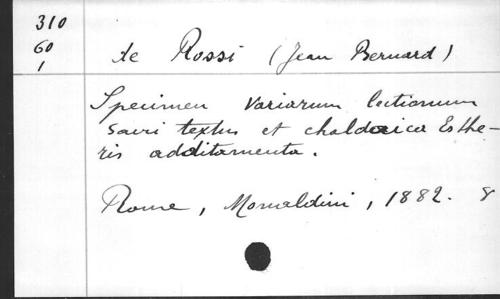 310
60
1
de Rossi (Jean Bernard)
Specimen Variarum lectionum
sacri textus et chaldaica Esthe-
ris additamenta.
Rome, Monaldini, 1882. 8